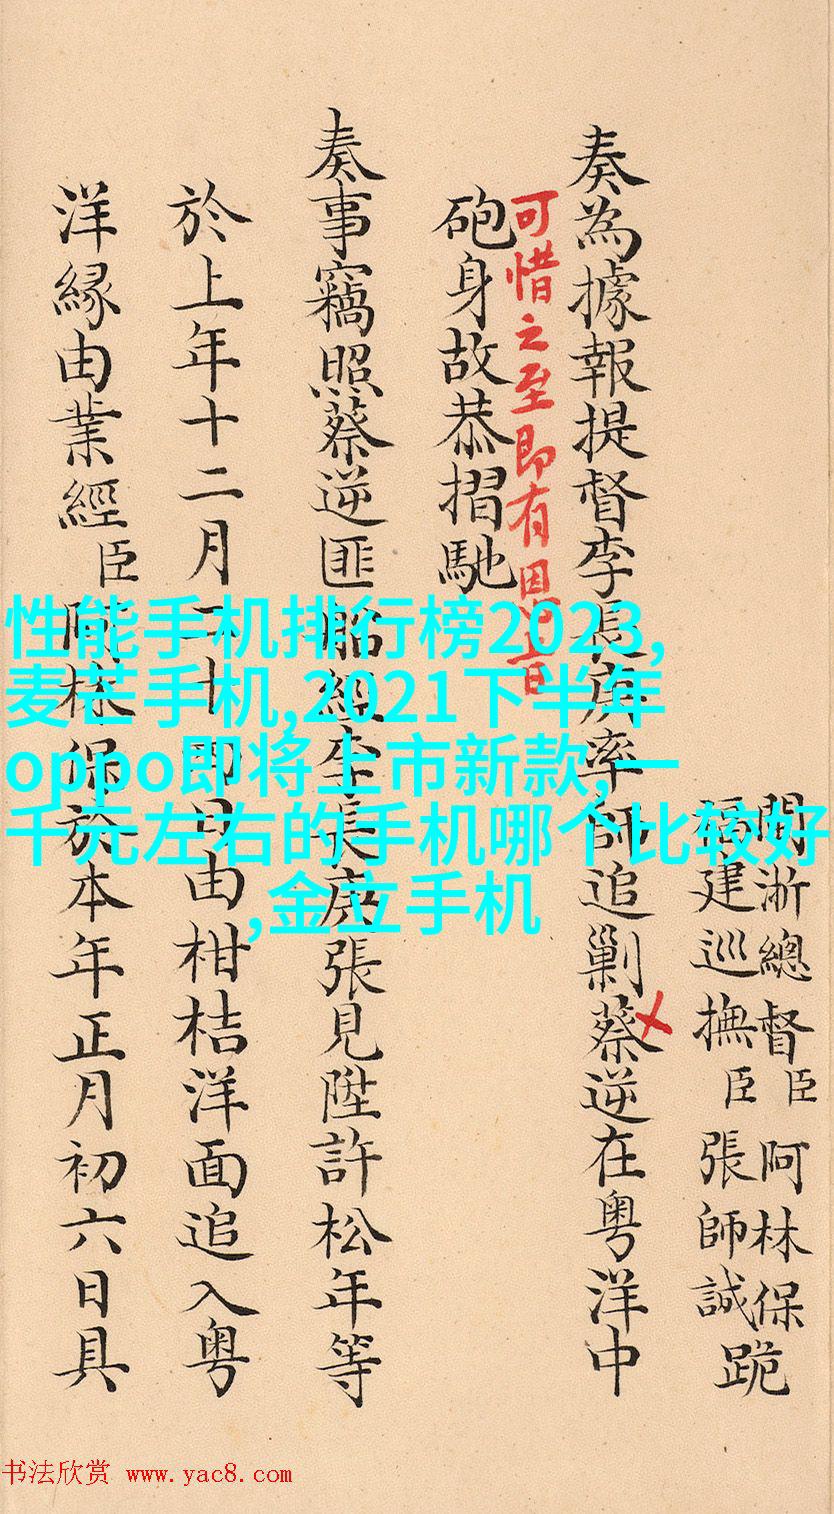 閩浙總督臣阿林保
福建巡撫臣張師誠
跪
奏為據報提督李長庚率師追剿蔡逆在粤洋中
可惜之至即有恩旨
砲身故恭摺馳
奏事竊照蔡逆匪船經李長庚張見陞許松年等
於上年十二月二十四日由柑桔洋面追入粤
洋緣由業經臣阿林保於本年正月初六日具
性能手机排行榜2023,
麦芒手机,2021下半年
oppo即将上市新款,一
千元左右的手机哪个比较好
,金立手机
书法欣赏 www.yac8.com